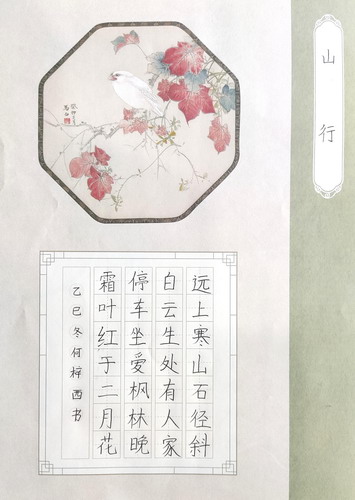 山行
远上寒山石径斜
白云生处有人家
停车坐爱枫林晚
霜叶红于二月花
乙巳冬何梓西书